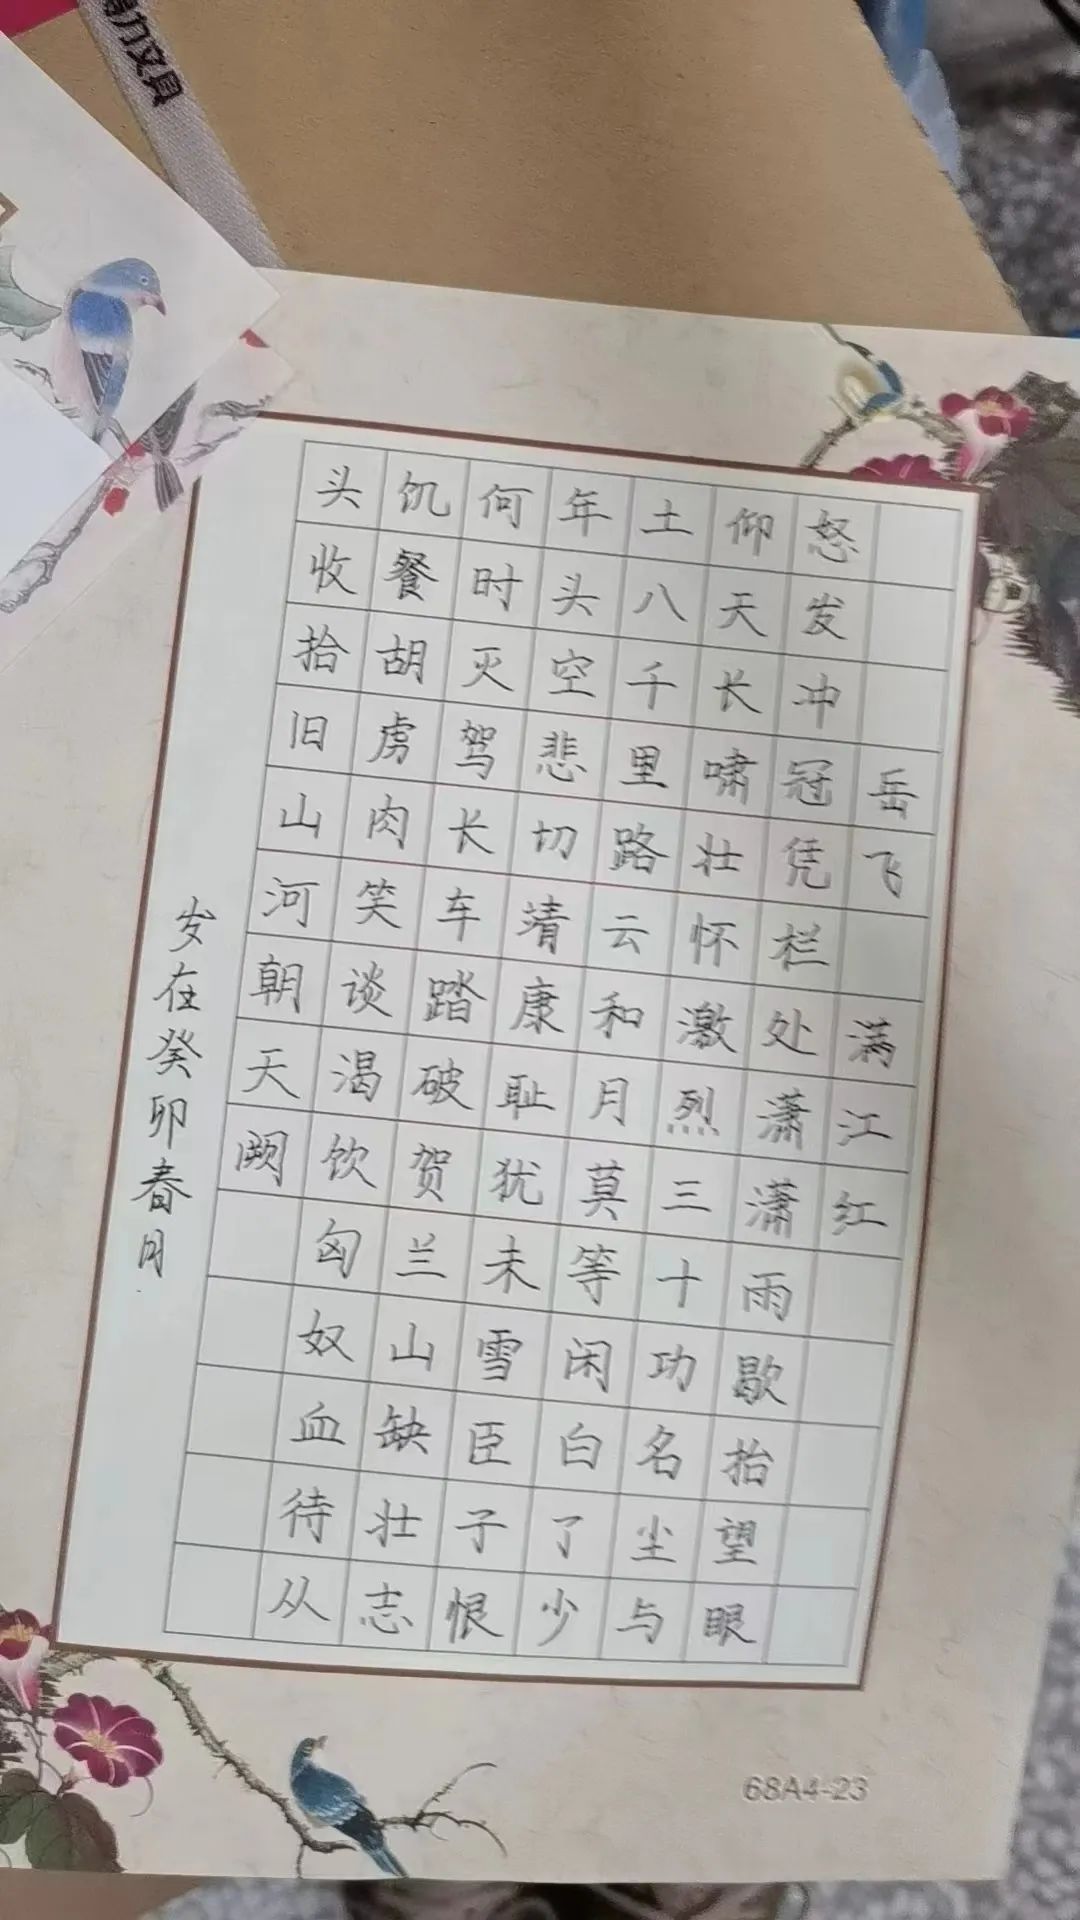 力文具
岳飞 满江红
怒发冲冠凭栏处潇潇雨歇抬望眼
仰天长啸壮怀激烈三十功名尘与
土八千里路云和月莫等闲白了少
年头空悲切靖康耻犹未雪臣子恨
何时灭驾长车踏破贺兰山缺壮志
饥餐胡虏肉笑谈渴饮匈奴血待从
头收拾旧山河朝天阙
岁在癸卯春月
68A4-23